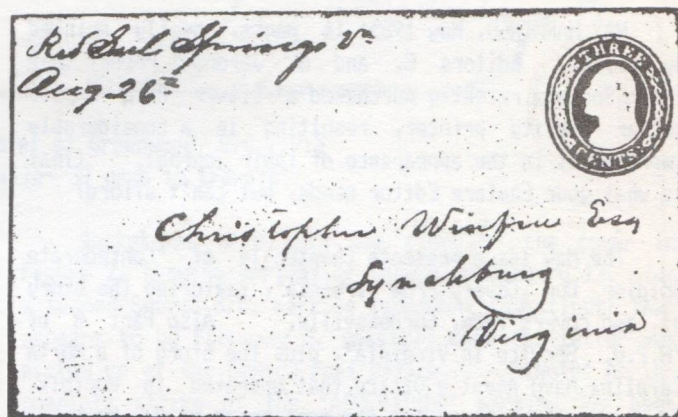 Red Sul Springs Va
Aug 26th
THREE
CENTS
Christopher Winfree Esq
Lynchburg
Virginia